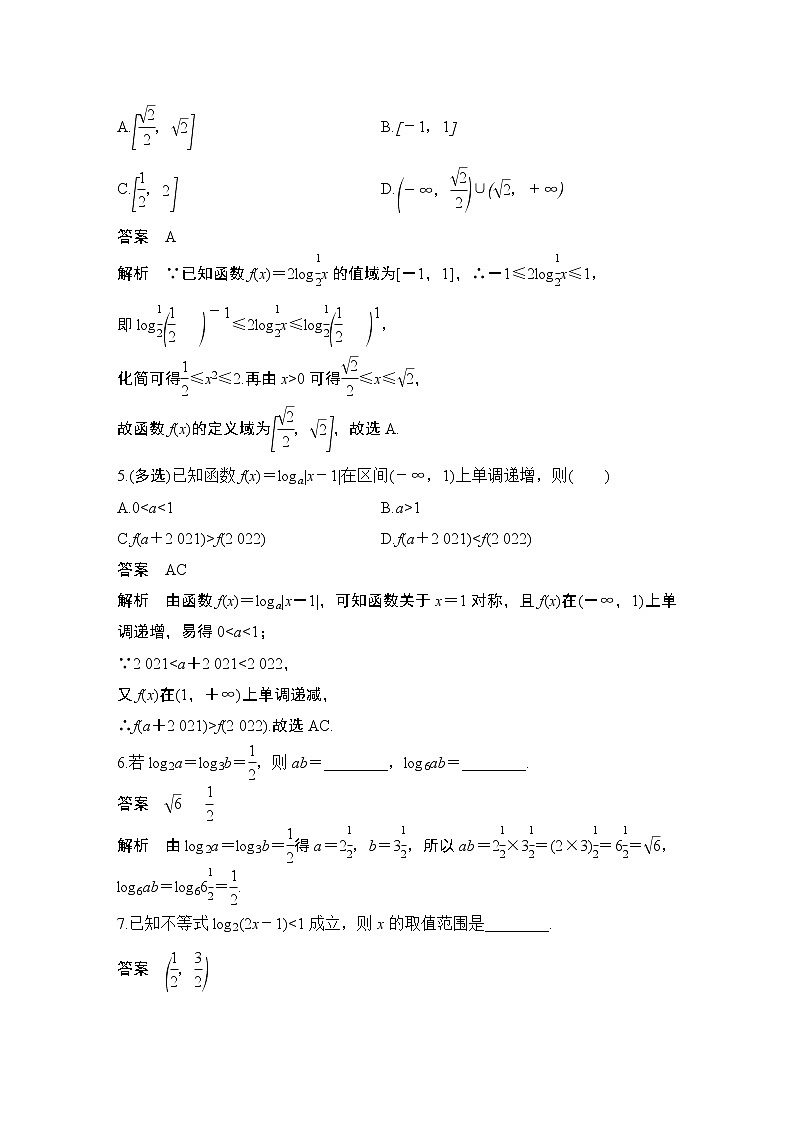 A.[√2/2，√2] B.[－1，1]
C.[1/2，2] D.(－∞，√2/2)∪(√2，＋∞)
答案　A
解析　∵已知函数 f(x)＝2log1/2x 的值域为[－1，1]，∴－1≤2log1/2x≤1，
即 log1/2(1/2)－1≤2log1/2x≤log1/2(1/2)1，
化简可得1/2≤x2≤2.再由 x>0 可得√2/2≤x≤√2，
故函数 f(x)的定义域为[√2/2，√2]，故选 A.
5.(多选)已知函数 f(x)＝loga|x－1|在区间(－∞，1)上单调递增，则(　　)
A.0<a<1 B.a>1
C.f(a＋2 021)>f(2 022) D.f(a＋2 021)<f(2 022)
答案　AC
解析　由函数 f(x)＝loga|x－1|，可知函数关于 x＝1 对称，且 f(x)在(－∞，1)上单
调递增，易得 0<a<1；
∵2 021<a＋2 021<2 022，
又 f(x)在(1，＋∞)上单调递减，
∴f(a＋2 021)>f(2 022).故选 AC.
6.若 log2a＝log3b＝1/2，则 ab＝________，log6ab＝________.
答案　√6　1/2
解析　由 log2a＝log3b＝1/2得 a＝21/2，b＝31/2，所以 ab＝21/2×31/2＝(2×3)1/2＝61/2＝√6，
log6ab＝log661/2＝1/2.
7.已知不等式 log2(2x－1)<1 成立，则 x 的取值范围是________.
答案　(1/2，3/2)